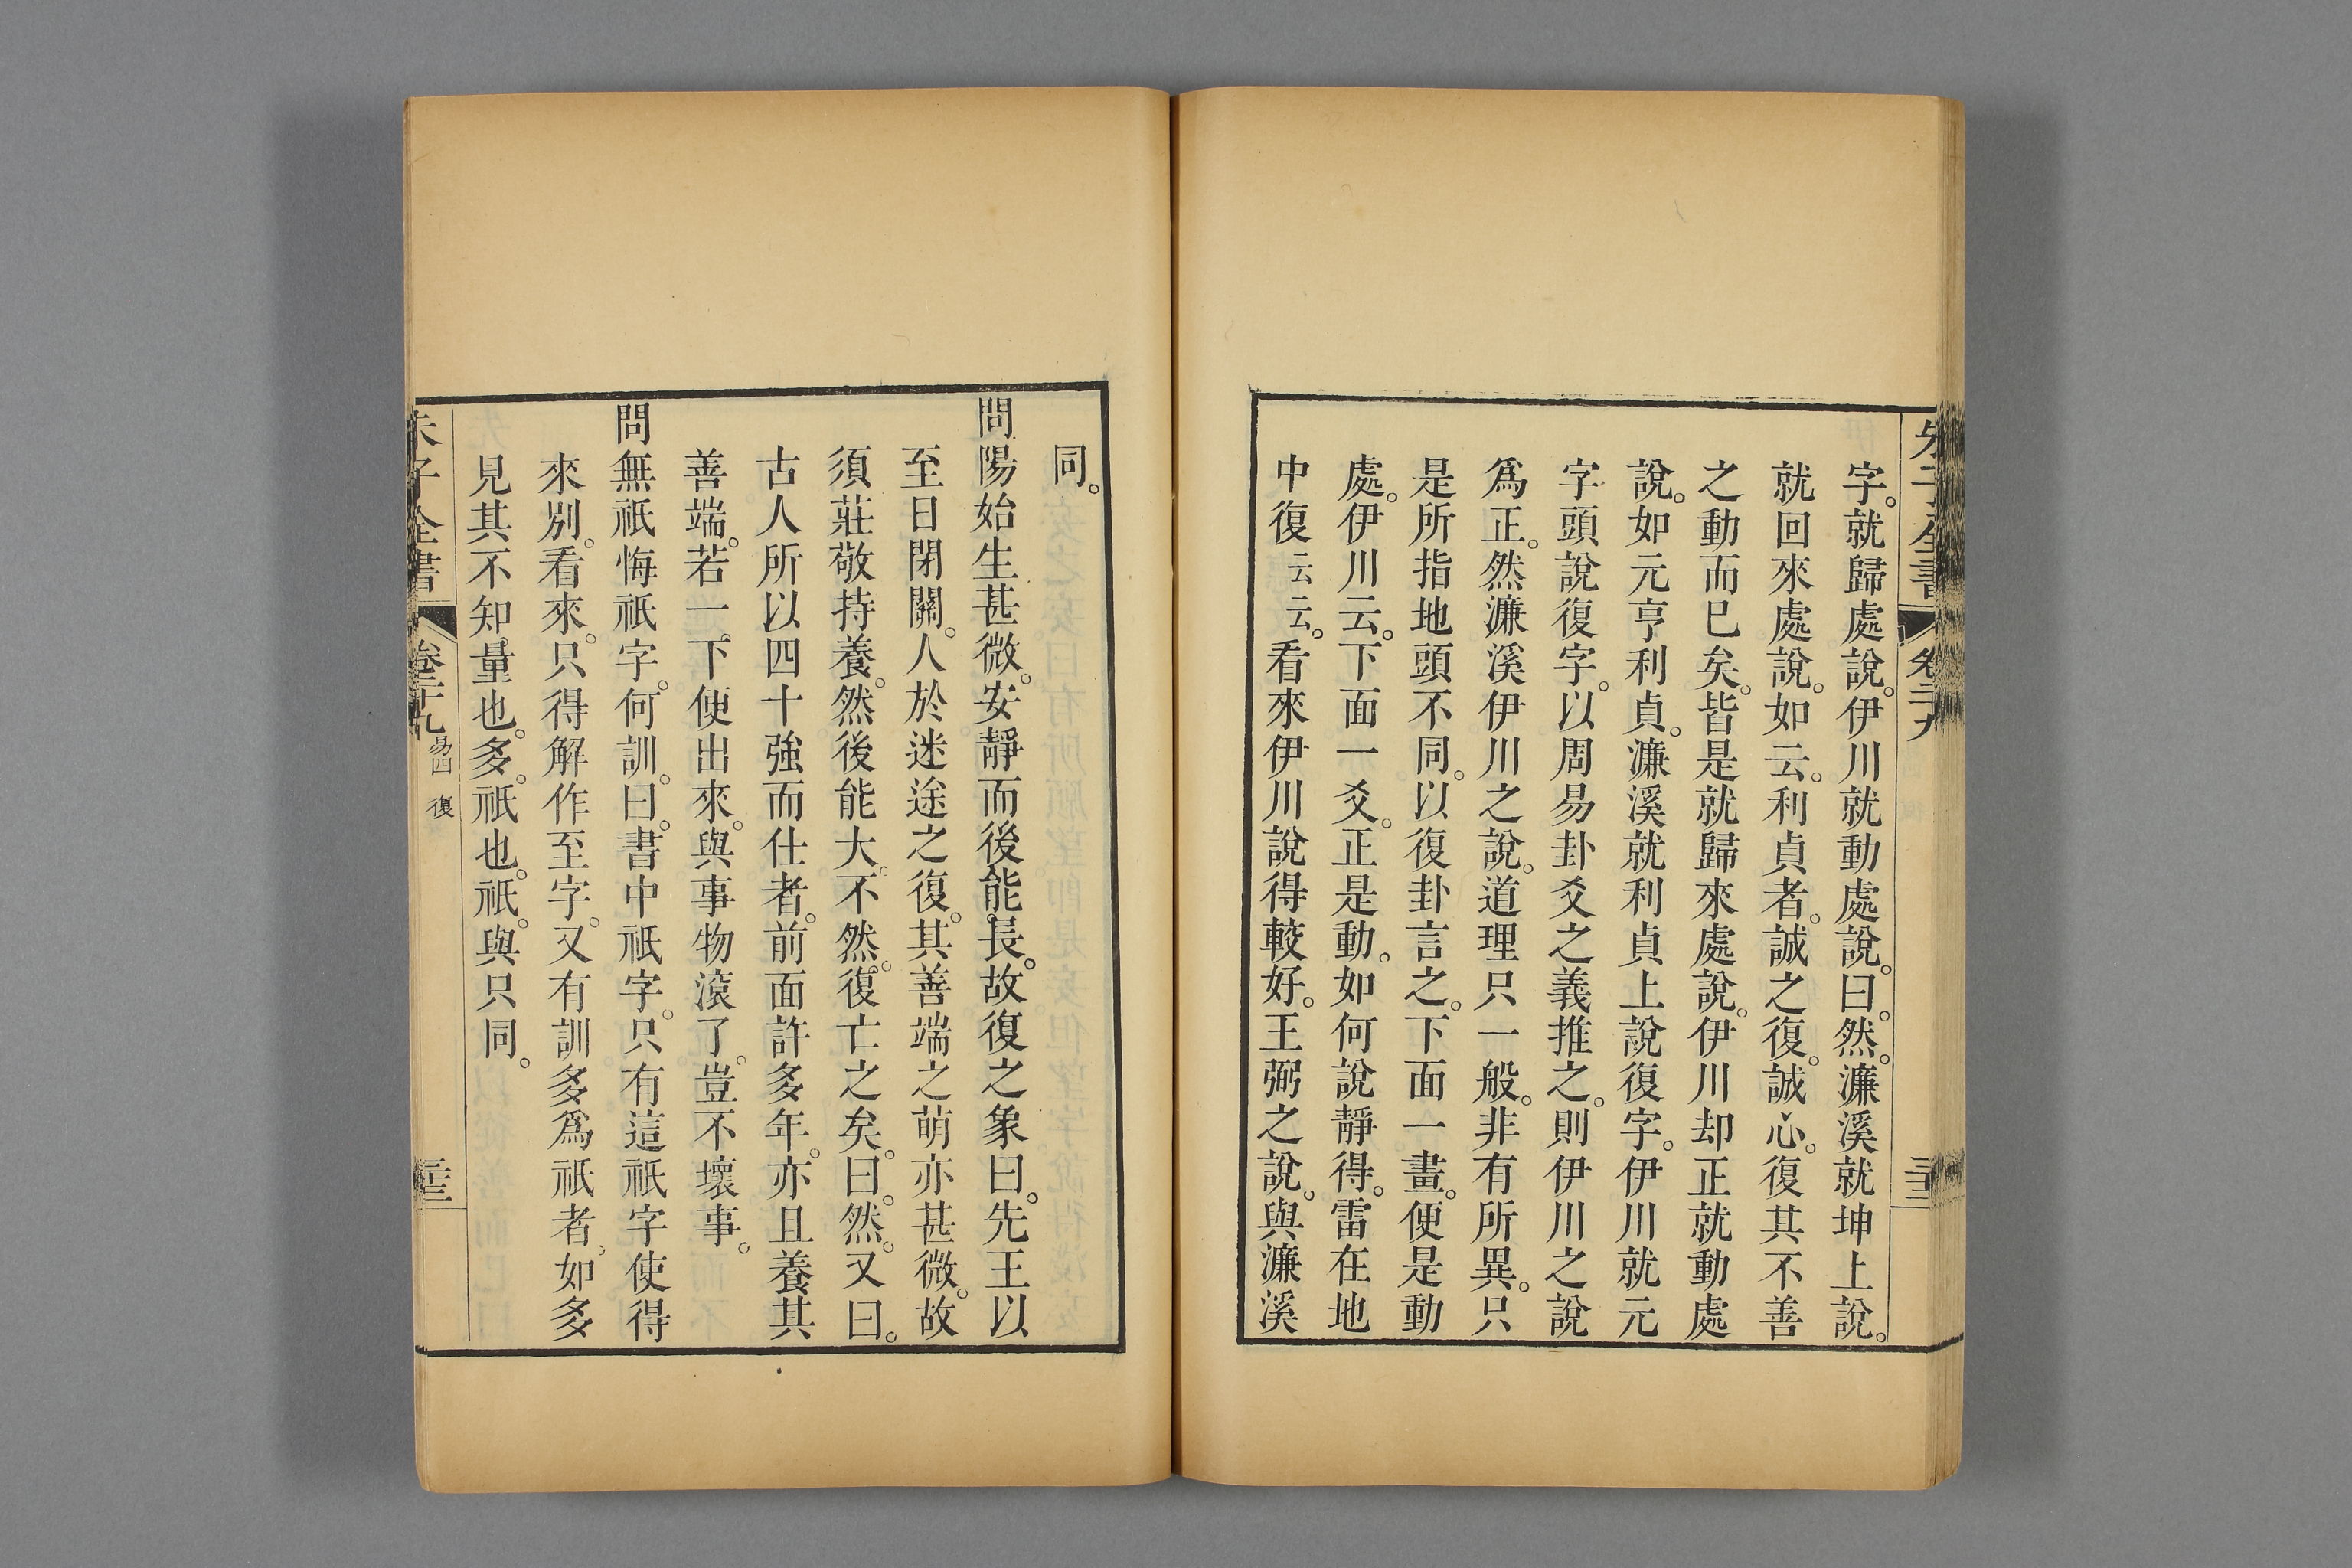 字。就歸處說。伊川就動處說。曰。然。濂溪就坤上說。
就回來處說。如云。利貞者。誠之復。誠心。復其不善
之動而已矣。皆是就歸來處說。伊川却正就動處
說。如元亨利貞。濂溪就利貞上說復字。伊川就元
字頭說復字。以周易卦爻之義推之。則伊川之說
爲正。然濂溪伊川之說。道理只一般。非有所異。只
是所指地頭不同。以復卦言之。下面一畫。便是動
處。伊川云。下面一爻。正是動。如何說靜得。雷在地
中復云云。看來伊川說得較好。王弼之說。與濂溪
同。
問陽始生甚微。安靜而後能長。故復之象曰。先王以
至日閉關。人於迷途之復。其善端之萌亦甚微。故
須莊敬持養。然後能大。不然。復亡之矣。曰。然。又曰。
古人所以四十強而仕者。前面許多年。亦且養其
善端。若一下便出來。與事物滾了。豈不壞事。
問無祇悔祇字。何訓。曰。書中祇字。只有這祇字使得
來別。看來。只得解作至字。又有訓多爲祇者。如多
見其不知量也。多。祇也。祇。與只同。
朱子全書 卷二十九 易四 復